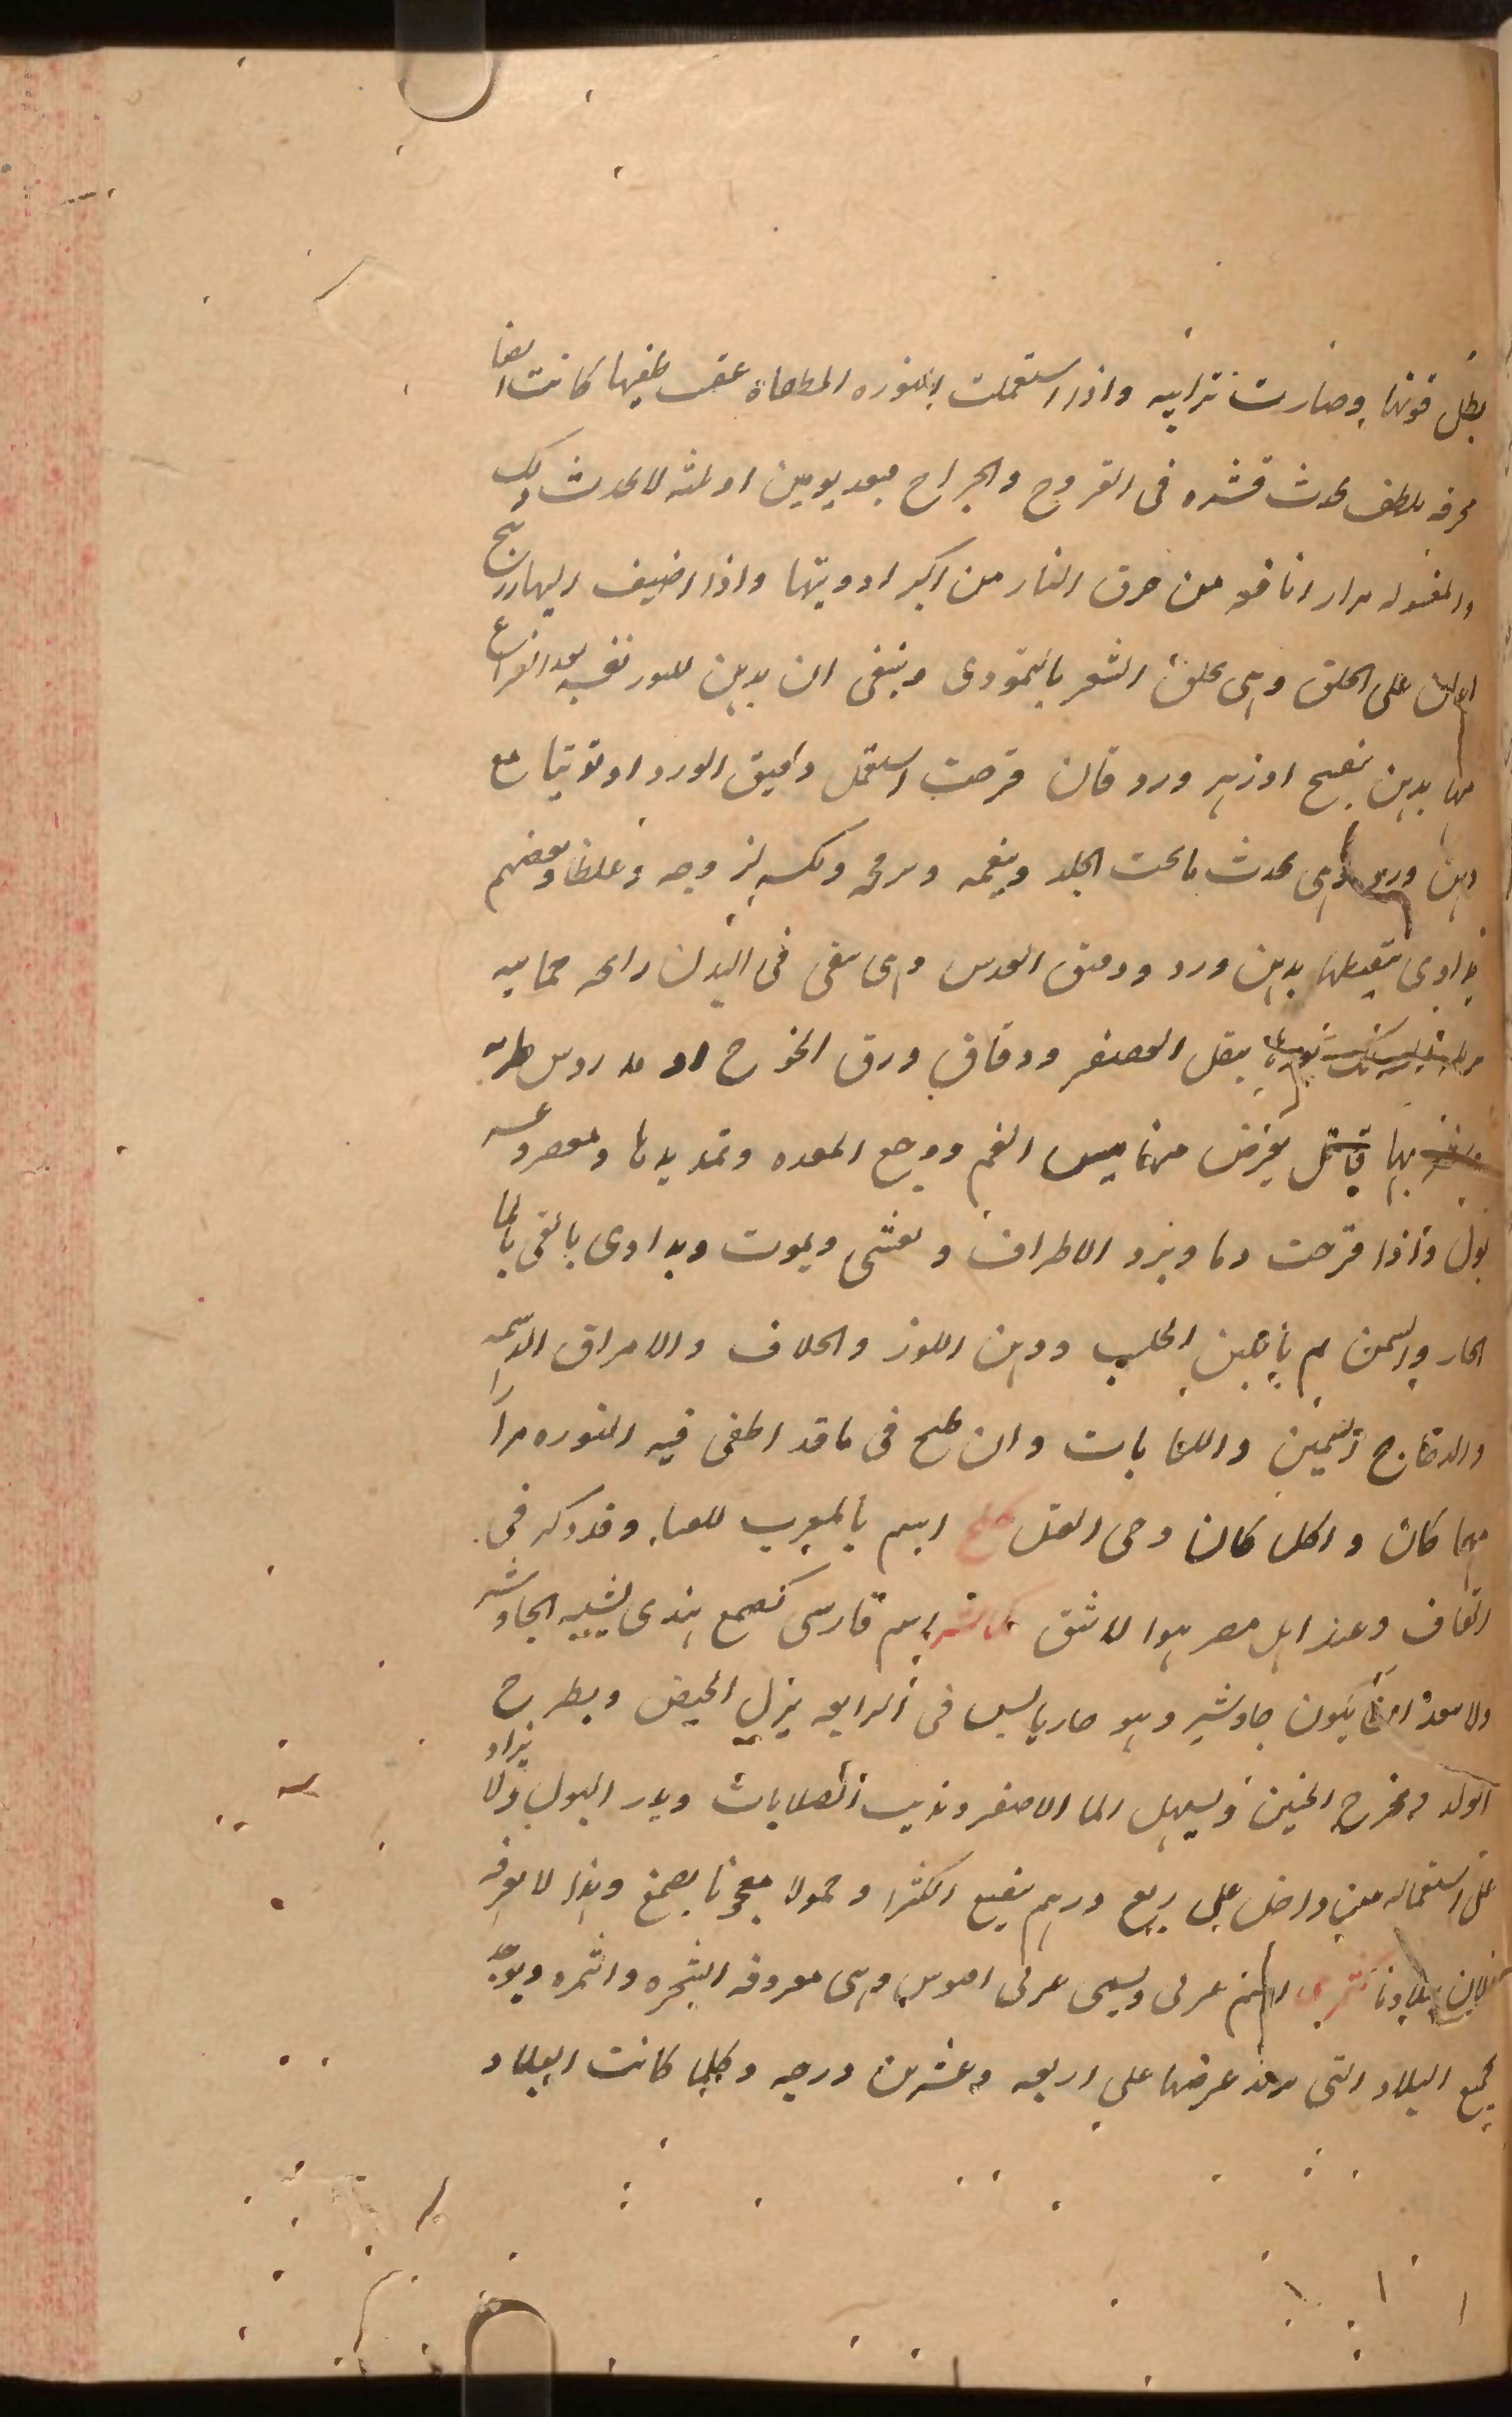 بطل قوتها وصارت ترابيه واذا استعملت النوره المطفاة عقب طفيها كانت ايضا
محرقه بلطف يحدث قشره فى القروح والجراح فبعد يومين او ثلثه لا يحدث ذلك
والمغسوله مرارا نافعه من حرق النار من اكبر ادويتها واذا اضيف اليها زرنيخ
على الحلق وهى تحلق الشعر بالتمودى وينبغى ان يدهن للنور نفسه بعد الفراغ
منها بدهن بنفسج او زهر ورد فان قرحت استعمل دقيق الورد او توتيا مع
دهن ورد وهى يحدث ما تحت الجلد وينعمه ويرخيه ويكسبه لزوجه وغلظا وبعضهم
يداوى تنقيطها بدهن ورد ودقيق العدس وهى تبقى فى البدن رائحه حمائيه
بثقل العصفر ودقاق ورق الخوخ او
بها قاتل يعرض منها يبس الفم ووجع المعده وتمديدها ومغص وعسر
بول واذا قرحت دما وبرد الاطراف وغشى ويموت ويداوى بالقى بالما
الحار والسمن ثم باللبن الحليب ودهن اللوز والامراق الدسمه
والدجاج السمين واللعابات وان طبخ فى ما قد اطفى فيه النوره مرارا
مهما كان واكل كان وحى القتل كلخ اسم بالمغرب للقنا وقد ذكر فى
القاف وعند اهل مصر هو الاشق اسم فارسى كصمغ هندى يشبه الجاوشير
ولا يبعد ان يكون جاوشير وهو حار يابس فى الرابعه يزل الحيض ويطرح
الولد ويخرج الجنين ويسهل الما الاصفر ويذيب الصلابات ويدر البول ولا يزاد
على استعماله من داخل على ربع درهم بنقيع الكثرا وحمولا معجونا بصمغ وهذا لا يعرفه
ببلادنا كمثرى اسم عربى ويسمى عربى وهى معروفه الشجره والثمره ويوجد
بجميع البلاد التى يزيد عرضها على اربعه وعشرين درجه وكلما كانت البلاد